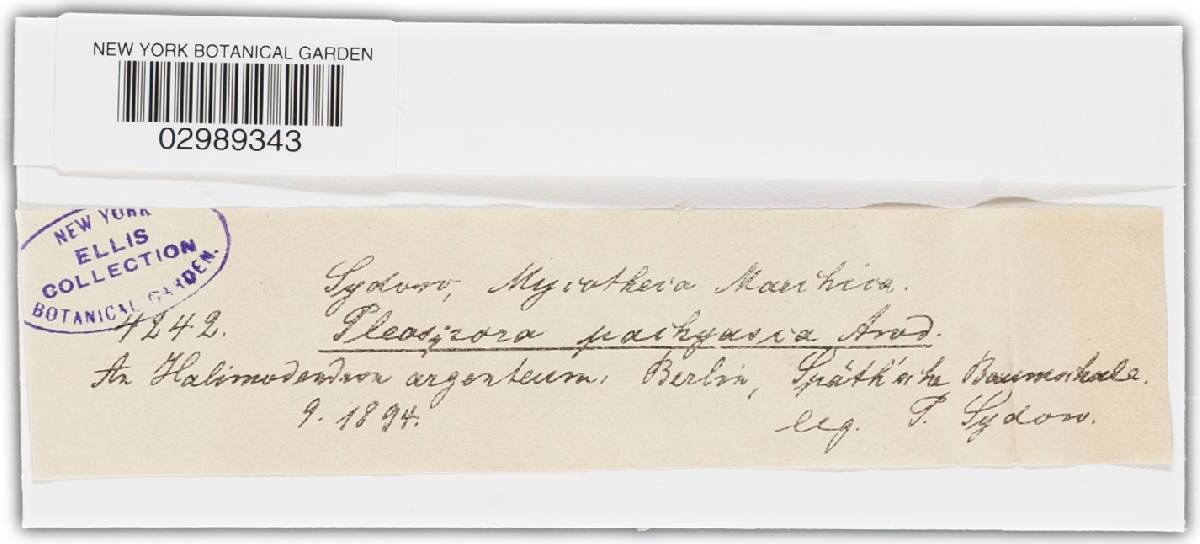 NEW YORK BOTANICAL GARDEN
02989343
NEW YORK
ELLIS
COLLECTION
BOTANICAL GARDEN.
Sydow, Mycotheca Marchica.
4242. Pleospora pachyasca Awd.
An Halimodendron argenteum. Berlin, Späth'sche Baumschule.
9. 1894. leg. P. Sydow.